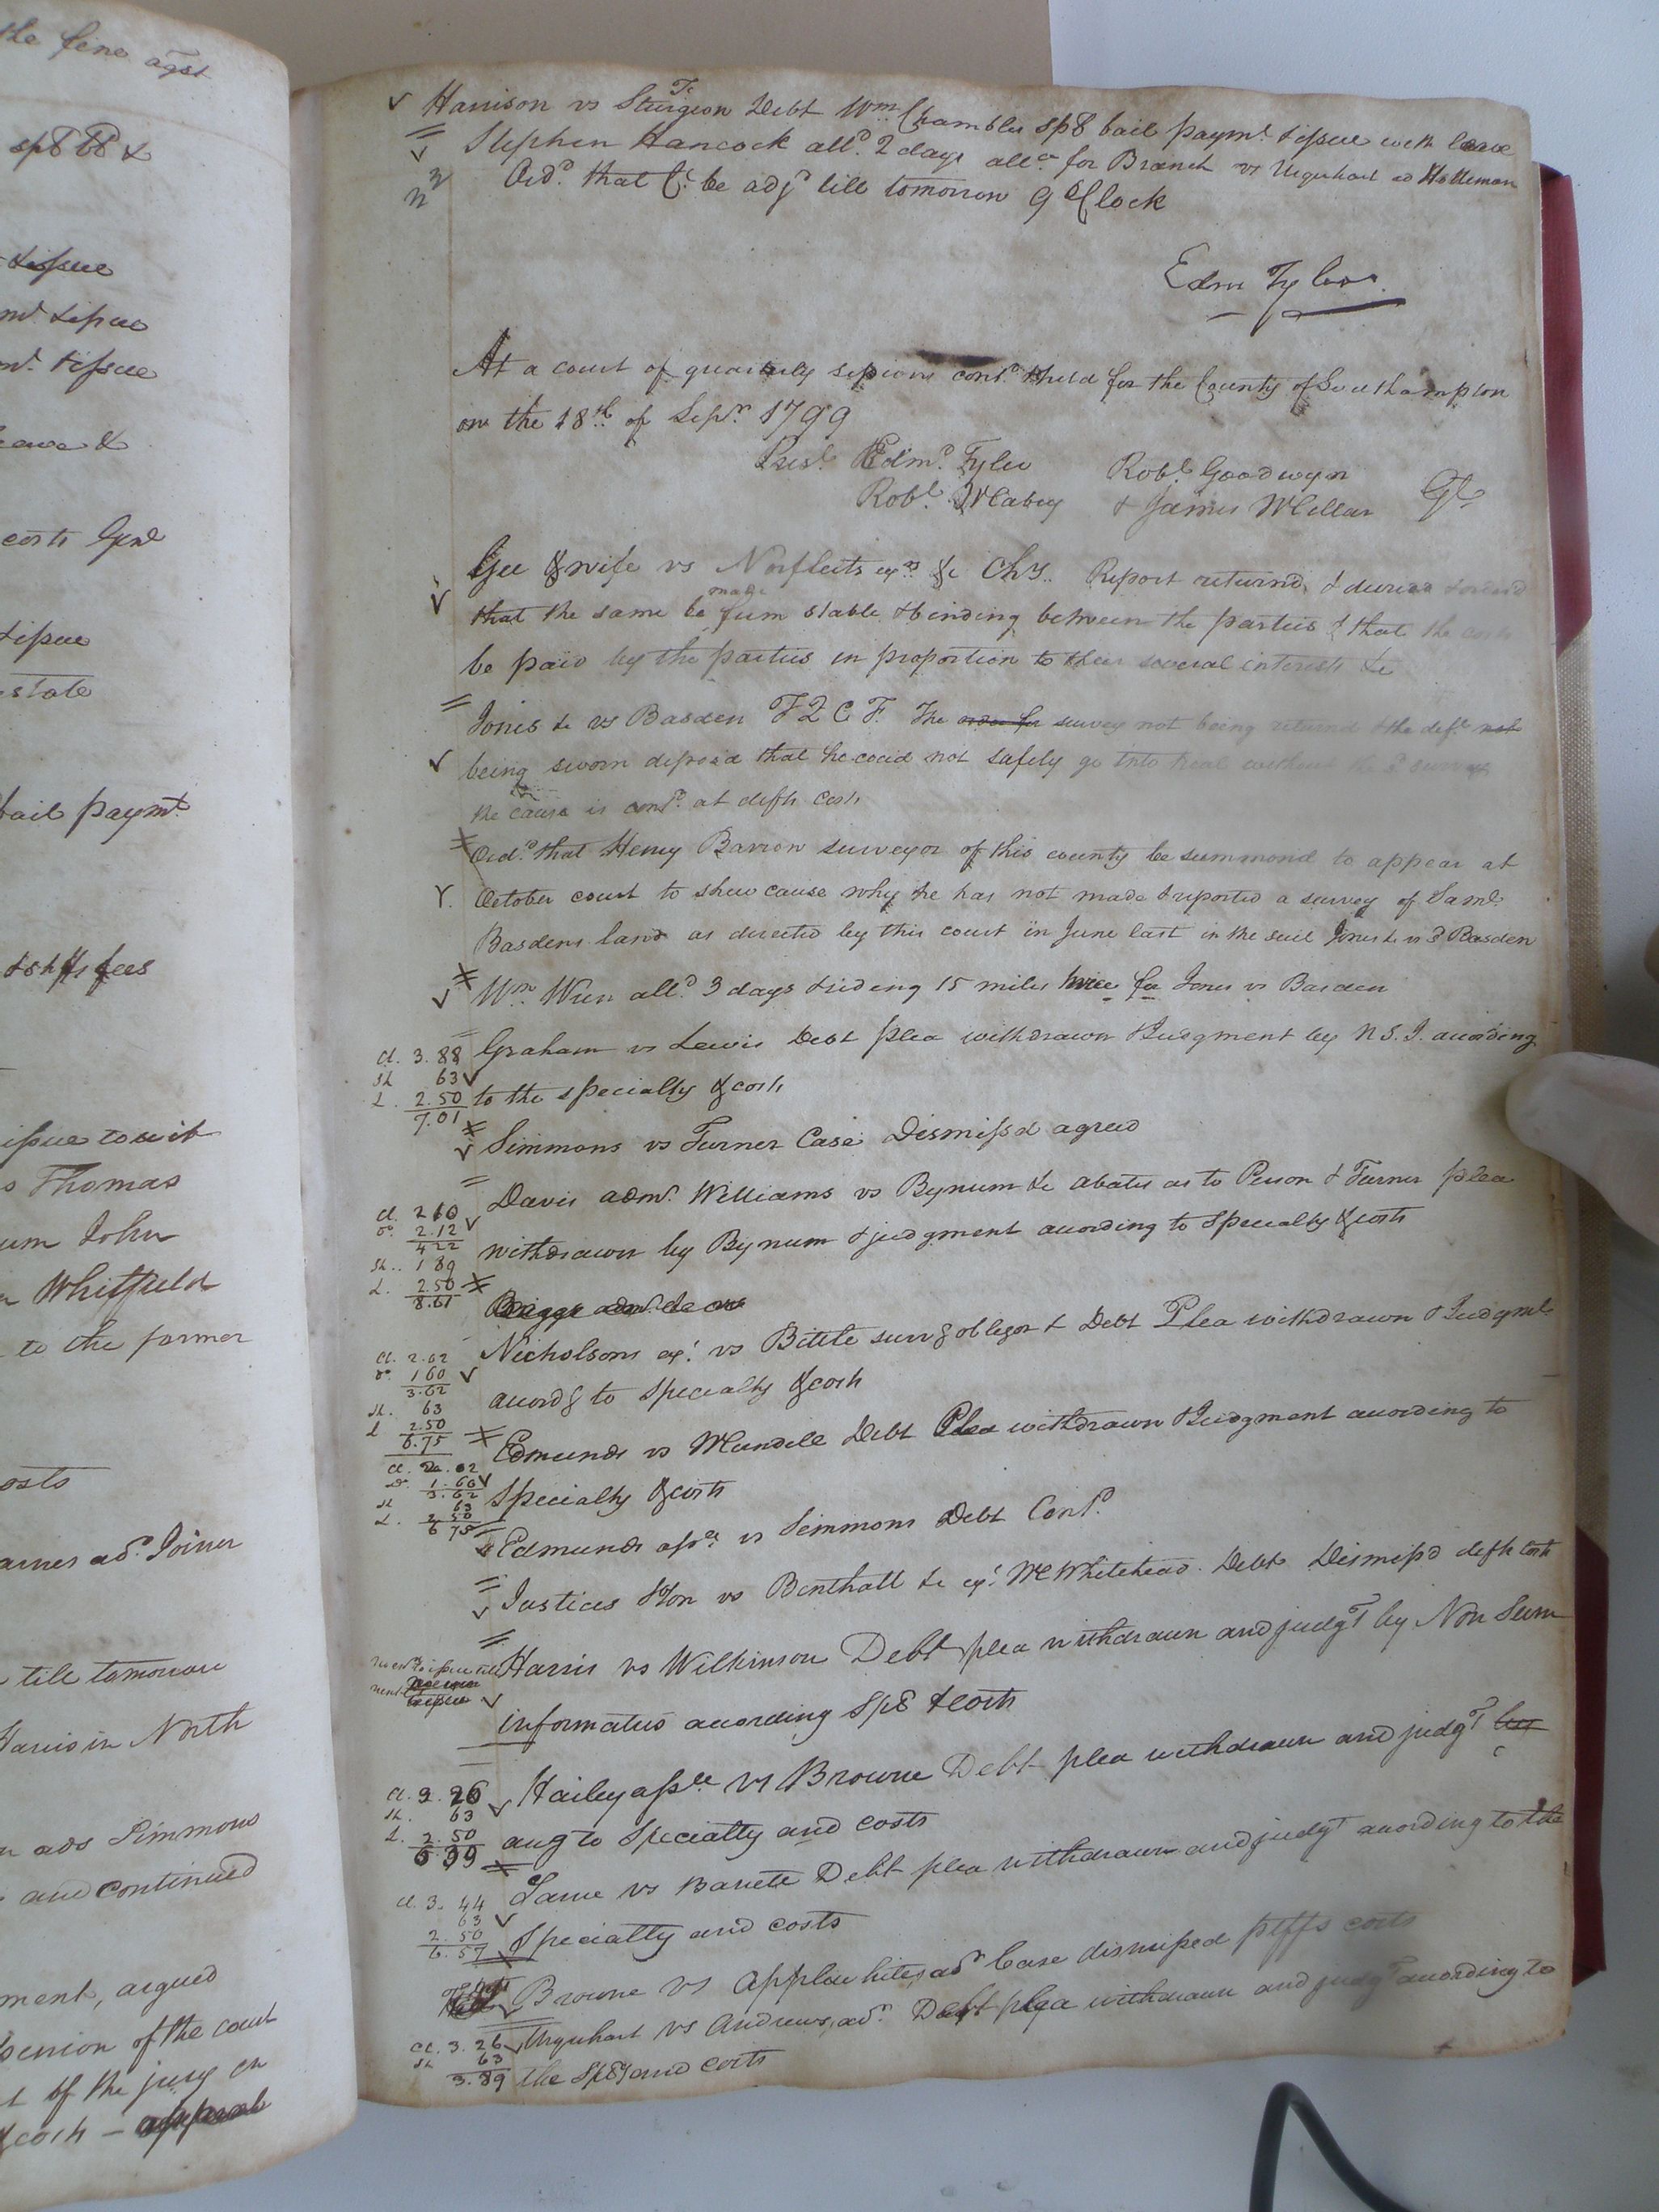 the fine agst
sp8 bB &
&issue
md. &issue
md. &issue
leave &
costs Genl
&issue
estate
bail paymt
& shffs fees
issue to wit
Thomas
John
Whitfield
to the former
costs
ad. Joiner
till tomorrow
Harris in North
ads Simmons
and continued
ment, argued
session of the court
of the jury on
& costs - appeal
Harrison vs Sturgeon Debt Wm. Chambliss sp8 bail paymt. & issue with leave
Stephen Hancock alld. 2 days for Branch vs Urquhart ad Holleman
Ord. that Ct. be adjd till tomorrow 9 oClock
Edm Tyler
At a court of quarterly sessions contd. & held for the County of Southampton
on the 18th. of Sepr. 1799
Prest. Edmd. Tyler Robt. Goodwyn
Robt. Mabry & James Millar Gt.
Gee & wife vs Norfleets exrs. &c Chy. Report returnd, & decree
that the same be made firm stable & binding between the parties & that the costs
be paid by the parties in proportion to their several interests &c
Jones &c vs Basden T L C F. The order for survey not being returnd & the deft. not
being sworn deposed that he coud not safely go into trial without the sd survey
the cause is contd. at defts costs
Ord. that Henry Barron surveyor of this county be summond to appear at
October court to shew cause why he has not made & reported a survey of Saml.
Basdens land as directed by this court in June last in the suit Jones &c vs sd Basden
Wm. Wren alld. 3 days & riding 15 miles twice for Jones vs Basden
Cl. 3.88 Graham vs Lewis Debt plea withdrawn & Judgment by N S. I. according
Sh 63
L. 2.50 to the specialty & costs
7.01
Simmons vs Turner Case Dismissd agreed
Cl. 210 Davis admr. Williams vs Bynum &c abates as to Person & Turner plea
do. 2.12
4.22 withdrawn by Bynum & judgment according to specialty & costs
Sh.. 1 89
L. 2.50
8.61 Briggs admr. &c vs
Cl. 2.02 Nicholsons exr. vs Bittle survg obligor & Debt Plea withdrawn & Judgmt.
do. 1 60
3.62 accordg to specialty & costs
Sh. 63
L 2.50
6.75 Edmunds vs Mundell Debt Plea withdrawn & Judgment according to
Cl. 2.02
do. 1.60
3.62 specialty & costs
Sh 63
L. 2 50
6 75 Edmunds assee vs Simmons Debt Contd.
Justices Shton vs Benthall &c exr. McWhitehead. Debt Dismissd defts costs
Harris vs Wilkinson Debt plea withdrawn and judgt by Non Sum
informatus according sp8 & costs
Cl. 3.26 Hailey assee vs Browne Debt plea withdrawn and judgt by
Sh. 63
L. 2.50 accg to Specialty and costs
6 39
Cl. 3.44 Same vs Barrett Debt plea withdrawn and judgt according to the
63
2.50 Specialty and costs
6.57
Browne vs Applewhites, adr Case dismissed plffs costs
Cl. 3.26 Urquhart vs Andrews, ad. Debt plea withdrawn and judgt according to
Sh 63
3.89 the sp8y and costs